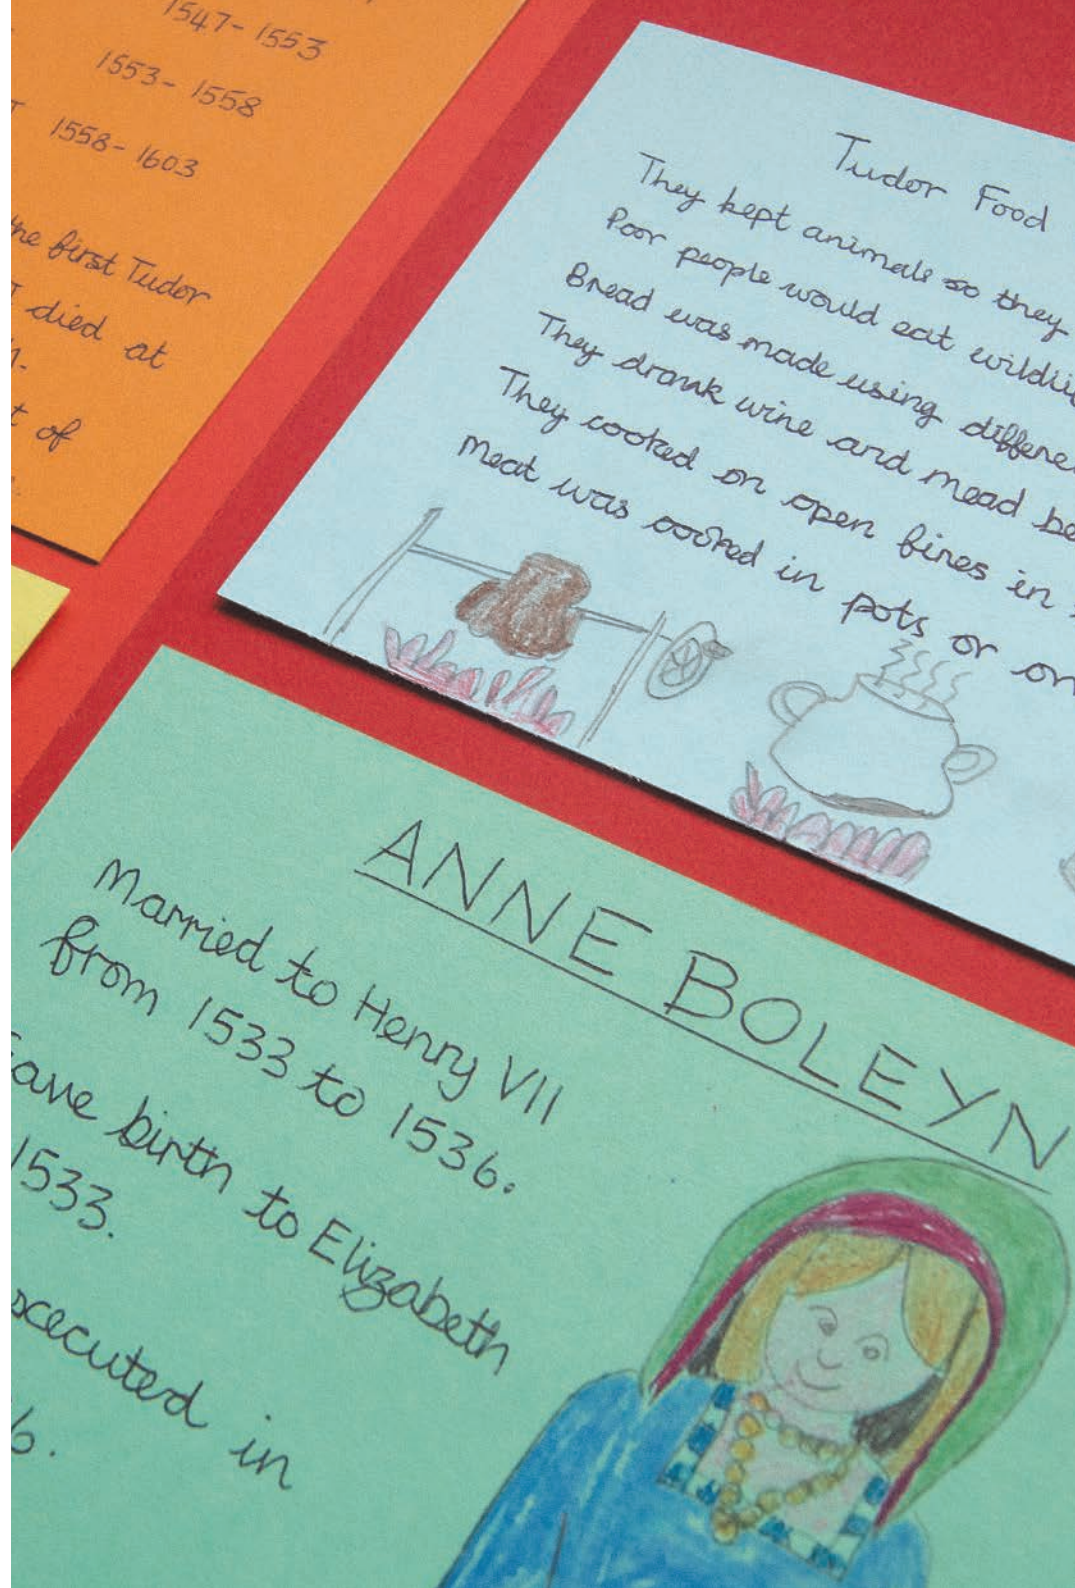 1547-1553
1553-1558
1558-1603
the first Tudor
died at
of
Tudor Food
They kept animals so they
Poor people would eat
Bread was made using
They drank wine and mead
They cooked on open fires in
Meat was cooked in pots or on
ANNE BOLEYN
Married to Henry VII
from 1533 to 1536.
birth to Elizabeth
1533.
in